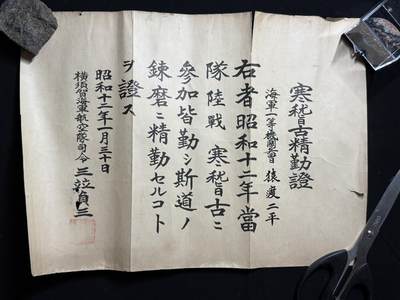 寒稽古精勤證
海軍一等機關曹 猿渡二平
右者昭和十二年當
隊陸戰寒稽古ニ
參加皆勤シ斯道ノ
錬磨ニ精勤セルコト
ヲ證ス
昭和十二年一月三十日
横須賀海軍航空隊司令三竝貞三